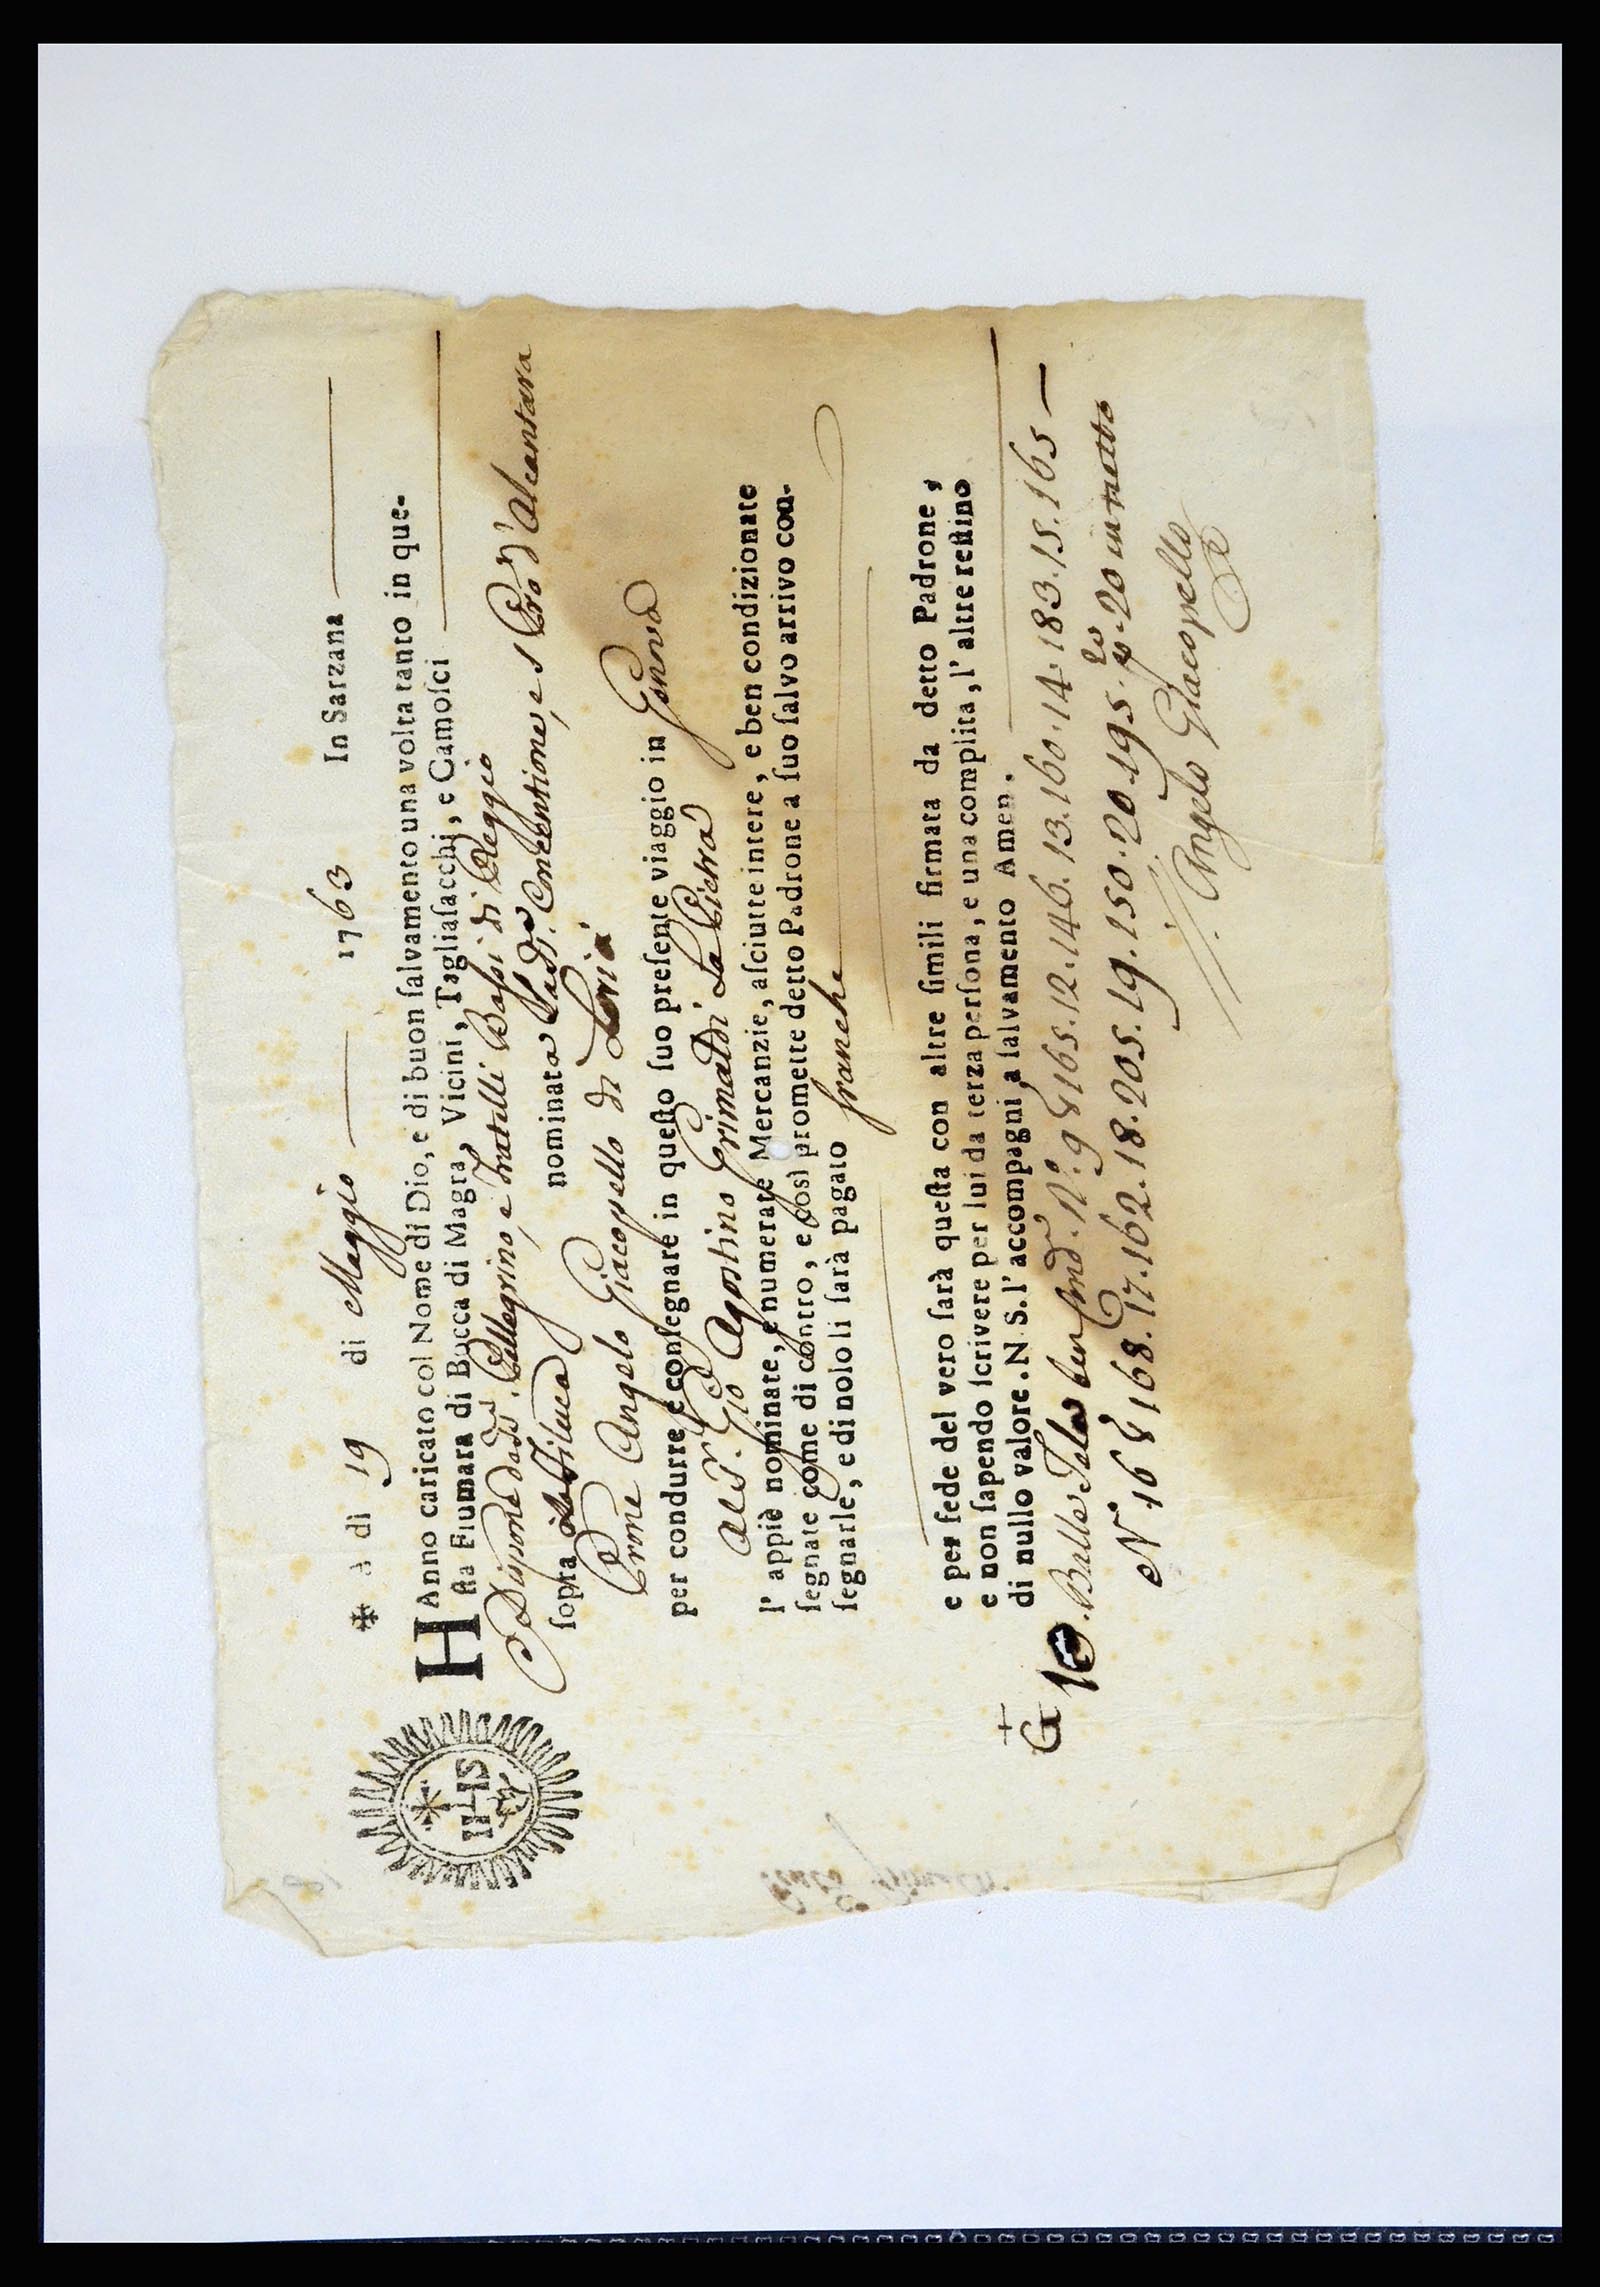 ✠ a di 19 di Maggio 1763 In Sarzana
IHS
HAnno caricato col Nome di Dio, e di buon ſalvamento una volta tanto in que-
ſta Fiumara di Bocca di Magra, Vicini, Tagliaſacchi, e Camoſci
Dispone da di Pellegrino, e Fratelli Bassi di Reggio
ſopra nominata Concentione, e S Pro d'Alcantara
Prone Angelo Giacopello di Lerici
per condurre, e conſegnare in queſto ſuo preſente viaggio in Genova
al S.r Gio Agostino Grimaldi La Pietra
l' appiè nominate, e numerate Mercanzie, aſciutte intere, e ben condizionate
ſegnate come di contro, e così promette detto Padrone a ſuo ſalvo arrivo con-
ſegnarle, e di nolo li ſarà pagato franche
e per fede del vero ſarà queſta con altre ſimili firmata da detto Padrone,
e non ſapendo ſcrivere per lui da terza perſona, e una complita, l' altre reſtino
di nullo valore. N. S. l' accompagni a ſalvamento Amen.
G 10. Balle Tela ben N.o 9 165. 12. 146. 13. 160. 14. 183. 15. 165
N.o 16 168. 17. 162. 18. 205. 19. 150. 20. 195. 20 in netto
Angelo Giacopello